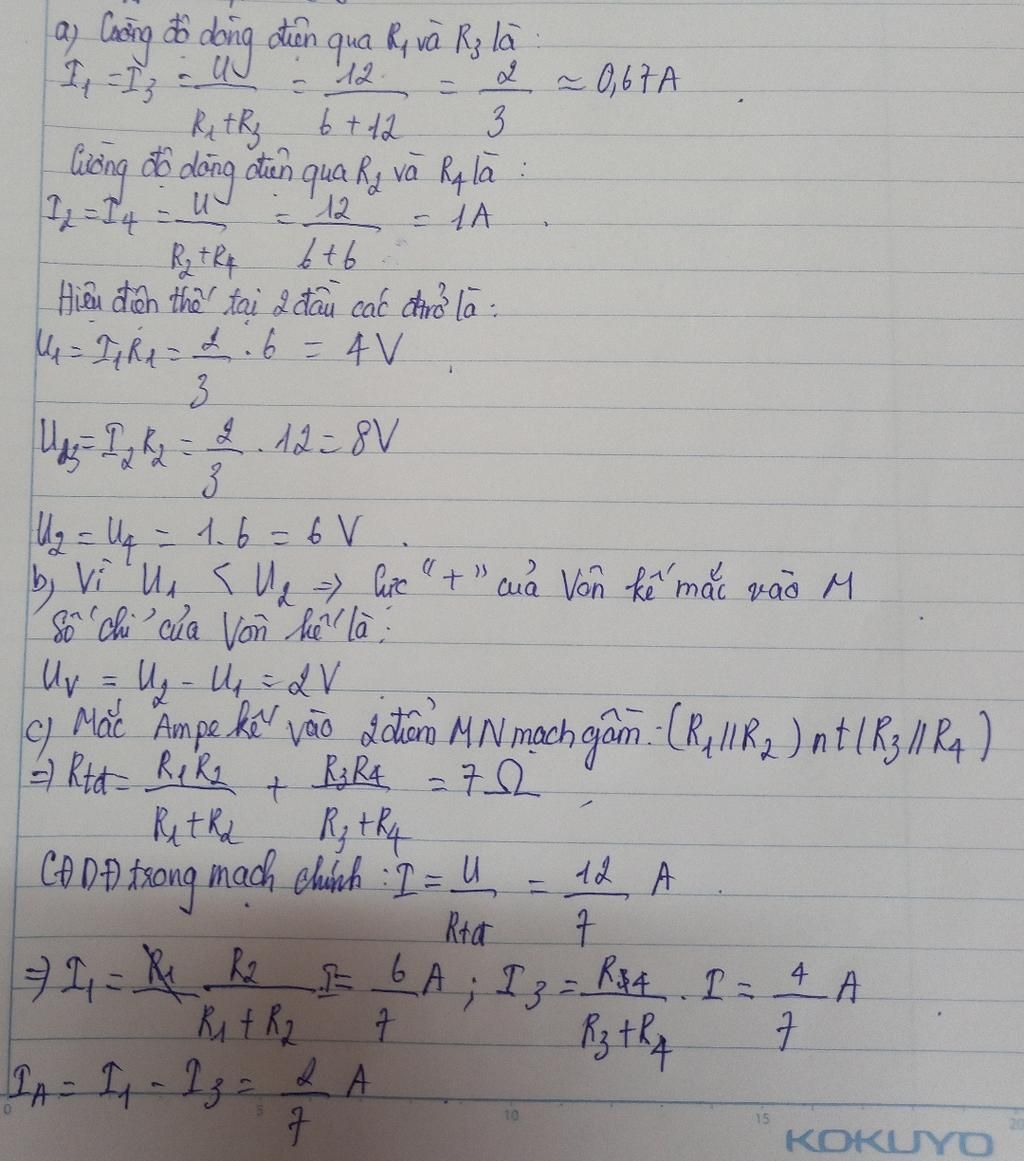 a) Cường độ dòng điện qua R₁ và R₃ là:
I₁ = I₃ = U/(R₁+R₃) = 12/(6+12) = 2/3 ≈ 0,67A
Cường độ dòng điện qua R₂ và R₄ là:
I₂ = I₄ = U/(R₂+R₄) = 12/(6+6) = 1A
Hiệu điện thế tại 2 đầu các đtrở là:
U₁ = I₁R₁ = 2/3 . 6 = 4V
U₃ = I₂R₂ = 2/3 . 12 = 8V
U₂ = U₄ = 1.6 = 6V.
b) Vì U₁ < U₂ => Cực "+" của Vôn kế mắc vào M
Số chỉ của Vôn kế là:
Uᵥ = U₂ - U₁ = 2V
c) Mắc Ampe kế vào 2 điểm MN mạch gồm: (R₁//R₂) nt (R₃//R₄)
=> Rtđ = R₁R₂/(R₁+R₂) + R₃R₄/(R₃+R₄) = 7Ω
CĐDĐ trong mạch chính: I = U/Rtđ = 12/7 A.
=> I₁ = R₂/(R₁+R₂) I = 6/7 A; I₃ = R₄/(R₃+R₄) . I = 4/7 A
I_A = I₁ - I₃ = 2/7 A
0 5 10 15 20
KOKUYO